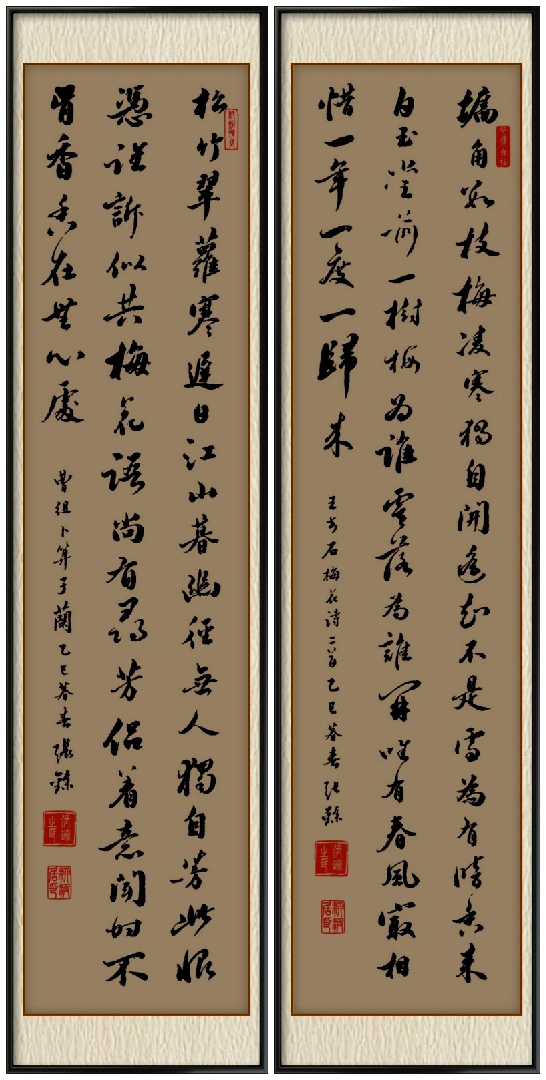 墙角數枝梅凌寒獨自開遥知不是雪為有暗香来
白玉堂前一樹梅為誰零落為誰開唯有春風最相
惜一年一度一歸来
王安石梅花诗二首乙巳暮春張
松竹翠蘿寒遲日江山暮幽徑無人獨自芳此恨
憑誰訴似共梅花語尚有尋芳侣着意聞时不
肯香香在無心處
曹组卜算子蘭乙巳暮春張